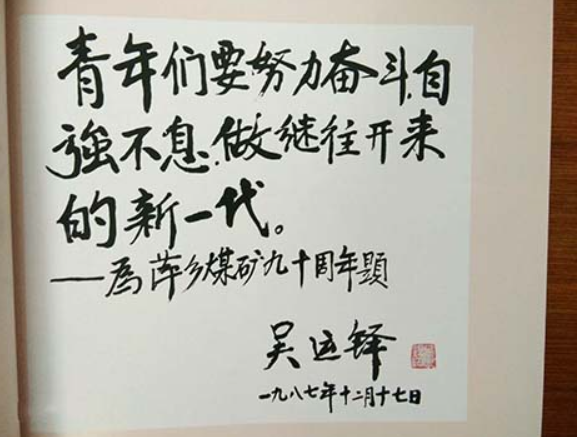 青年们要努力奋斗,自
强不息,做继往开来
的新一代。
——为萍乡煤矿九十周年题
吴运铎
一九八七年十二月十七日